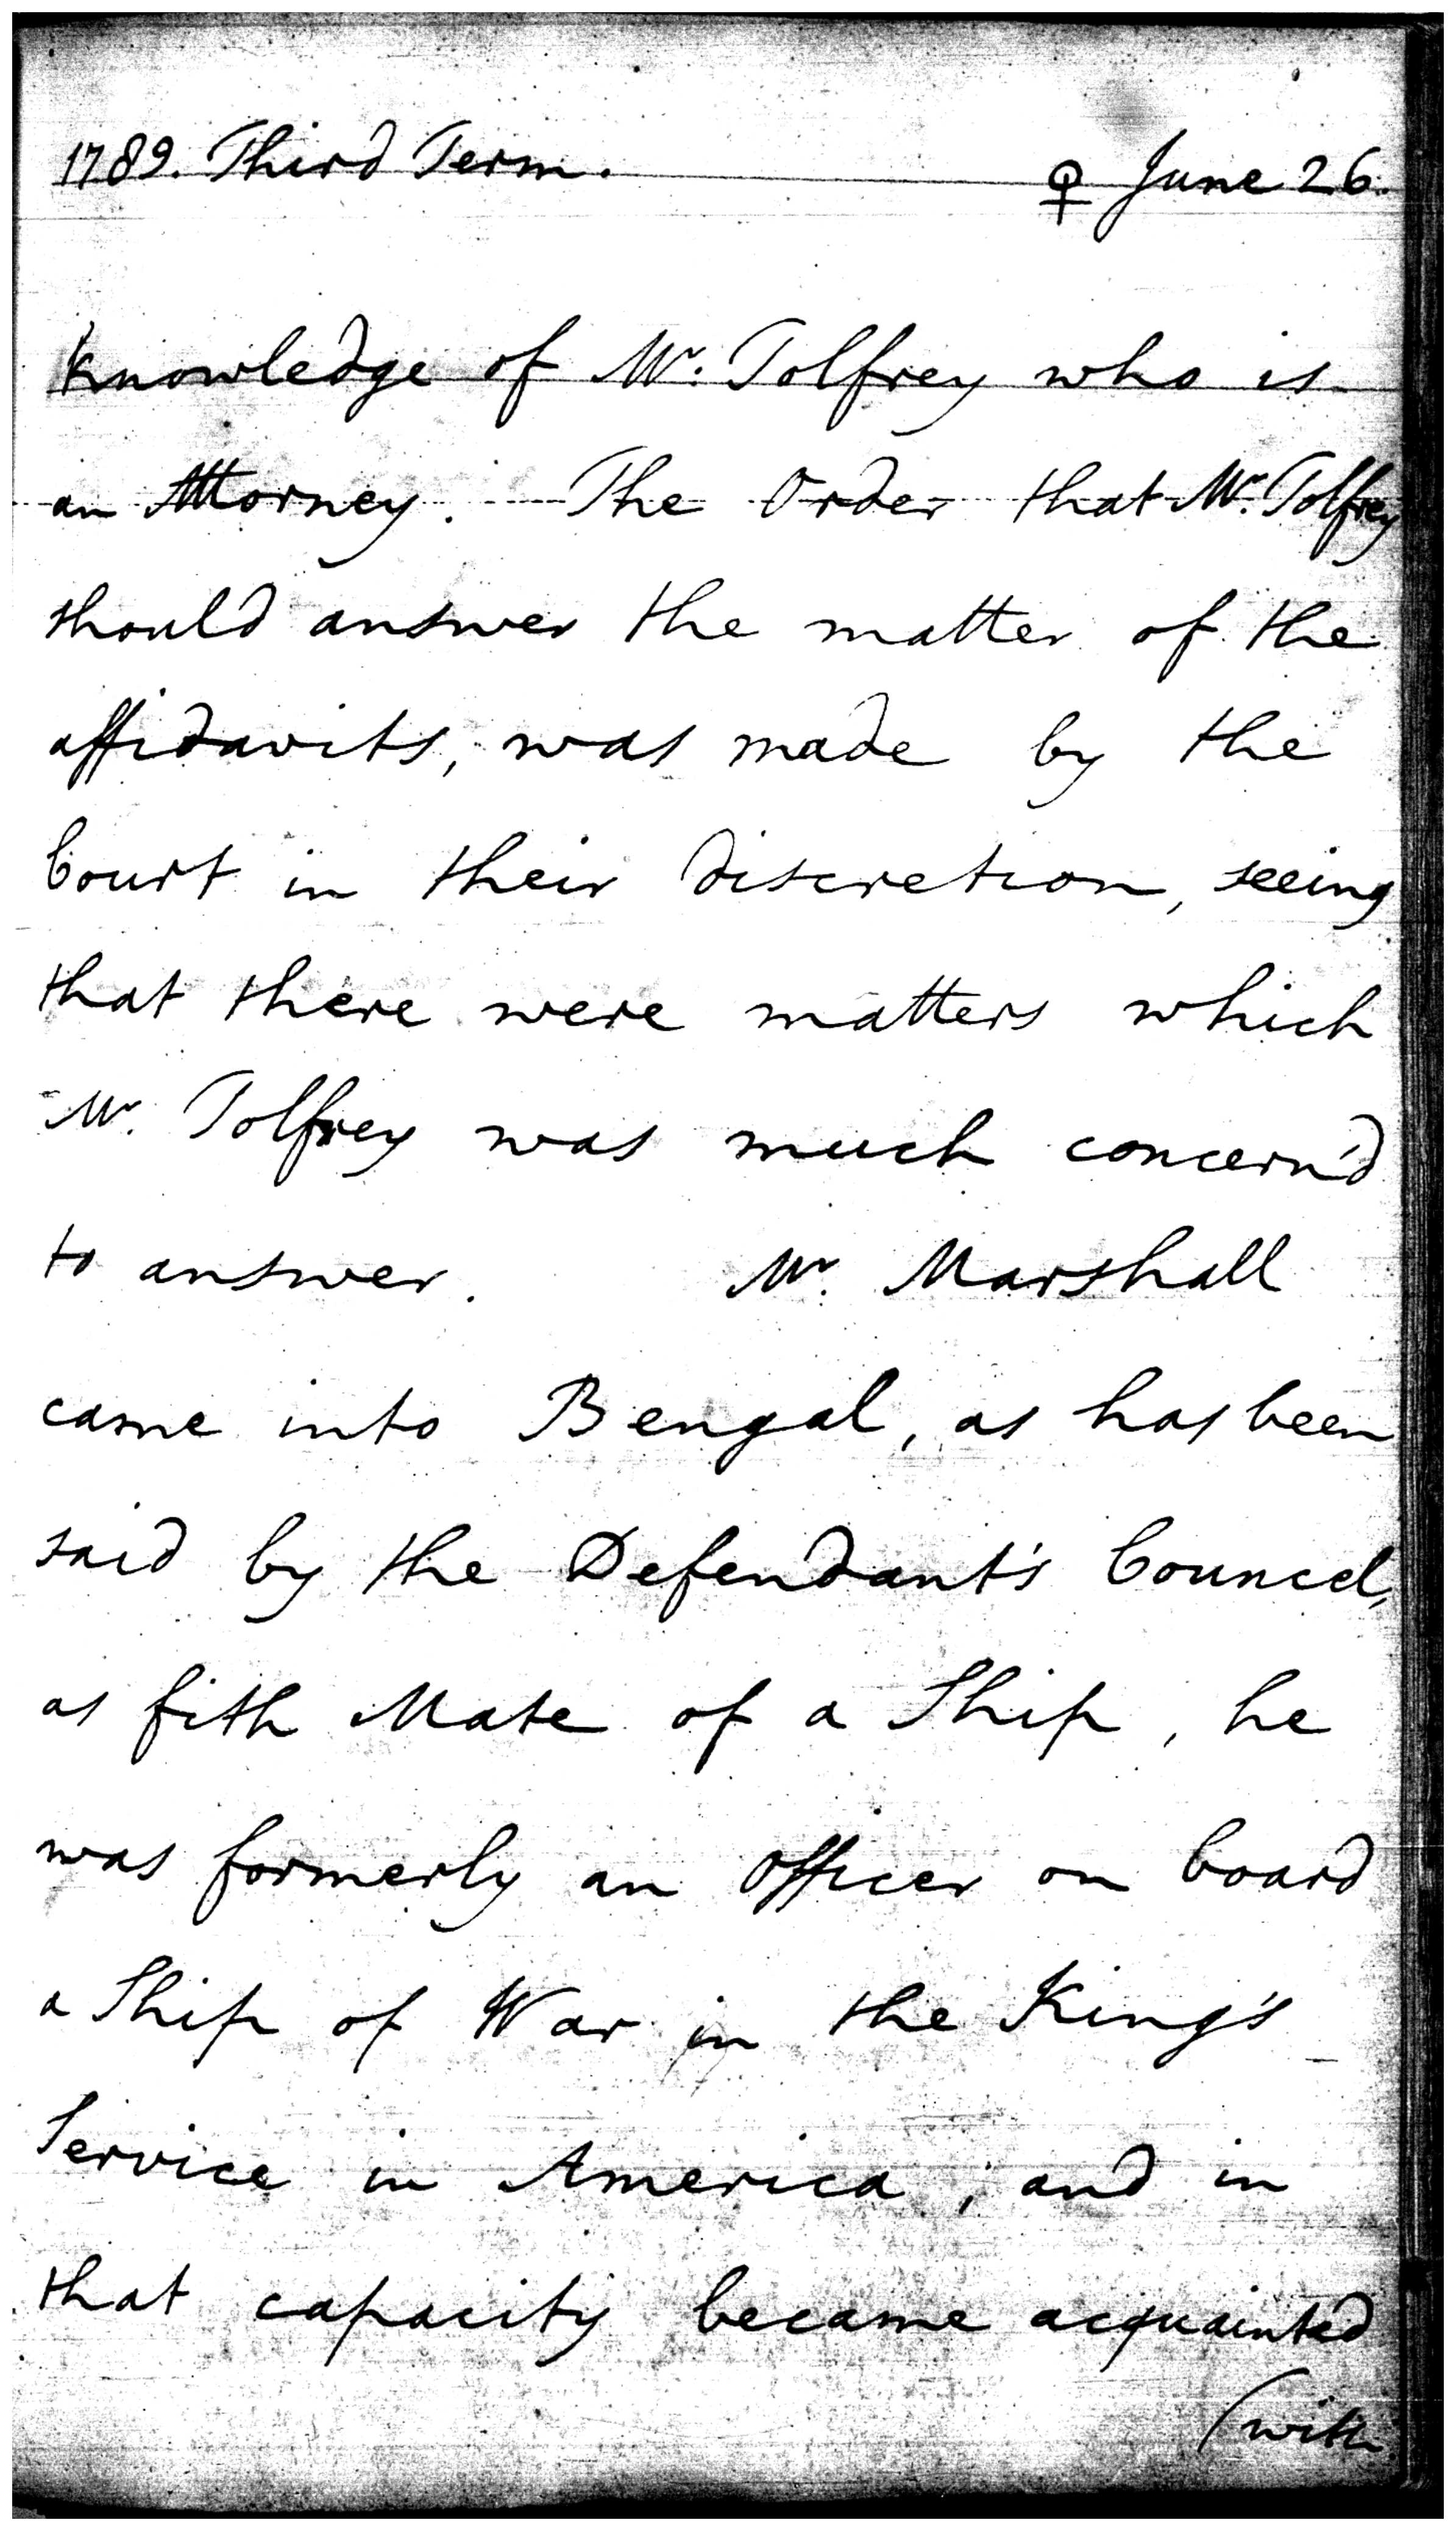 1789. Third Term. ♀ June 26.
knowledge of Mr. Tolfrey who is
an Attorney. The Order that Mr. Tolfrey
should answer the matter of the
affidavits, was made by the
Court in their discretion, seeing
that there were matters which
Mr. Tolfrey was much concern'd
to answer. Mr. Marshall
came into Bengal, as has been
said by the Defendant's Councel,
as fith Mate of a Ship, he
was formerly an Officer on board
a Ship of War in the King's
Service in America, and in
that capacity became acquainted
(with